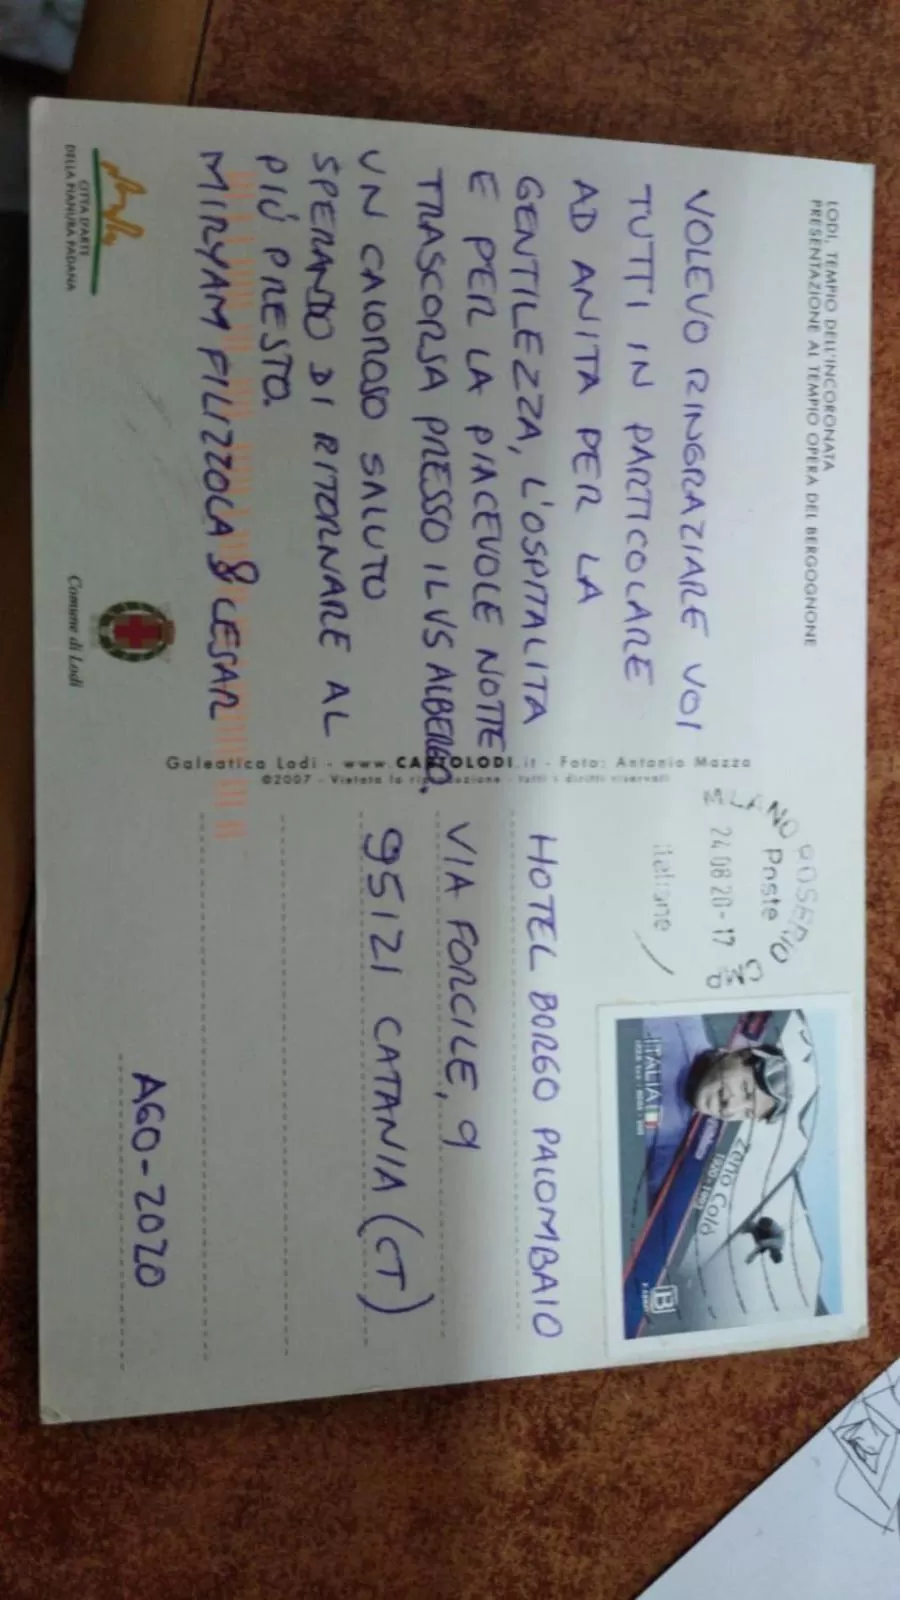 LODI, TEMPIO DELL'INCORONATA
PRESENTAZIONE AL TEMPIO OPERA DEL BERGOGNONE
VOLEVO RINGRAZIARE VOI
TUTTI IN PARTICOLARE
AD ANITA PER LA
GENTILEZZA, L'OSPITALITA
E PER LA PIACEVOLE NOTTE
TRASCORSA PRESSO IL VS ALBERGO.
UN CALOROSO SALUTO
SPERANDO DI RITORNARE AL
PIÚ PRESTO.
MIRYAM FILIZZOLA & CESAR
CITTÀ D'ARTE
DELLA PIANURA PADANA
Comune di Lodi
Galeatica Lodi - www.CARTOLODI.it - Foto: Antonio Mazza
©2007 - Vietata la riproduzione - tutti i diritti riservati
MILANO ROSERIO
Poste
24 08 20 - 17
italiane
ITALIA
Zeno Colò
1920-1993
B
HOTEL BORGO PALOMBAIO
VIA FORCILE, 9
95121 CATANIA (CT)
AGO-2020